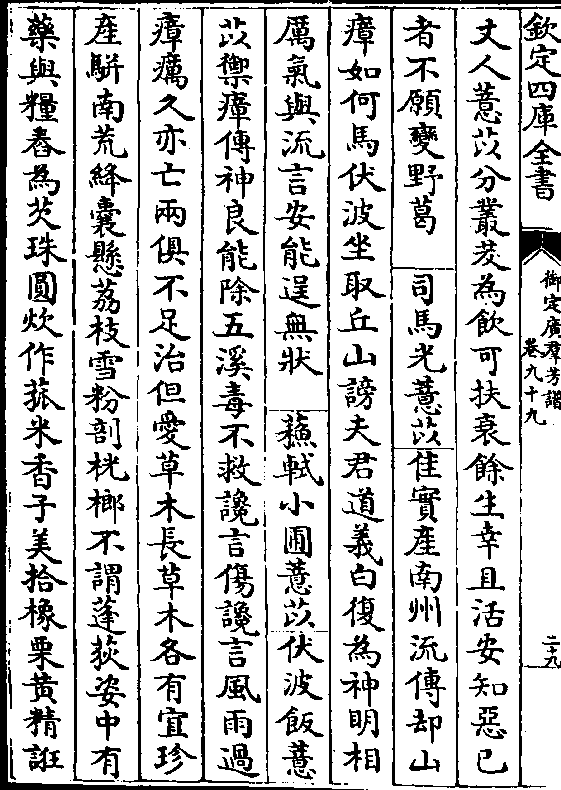 欽定四庫全書
御定廣群芳譜
卷九十九
二十九
丈人薏苡分叢茇為飲可扶衰餘生幸且活安知惡已
者不願變野葛　司馬光薏苡佳實產南州流傳却山
瘴如何馬伏波坐取丘山謗夫君道義白復為神明相
厲氣與流言安能逞無狀　蘇軾小圃薏苡伏波飯薏
苡禦瘴傳神良能除五溪毒不救讒言傷讒言風雨過
瘴癘久亦亡兩俱不足治但愛草木長草木各有宜珍
產駢南荒絳囊懸荔枝雪粉剖桄榔不謂蓬荻姿中有
藥與糧舂為芡珠圓炊作菰米香子美拾橡栗黄精誑